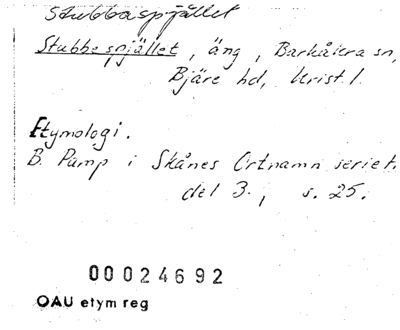 Stubbaspjället
Stubbespjället, äng, Barkåkra sn,
Bjäre hd, Krist. l.
Etymologi.
B. Pamp i Skånes Ortnamn serie A.
del 3., s. 25.
00024692
OAU etym reg